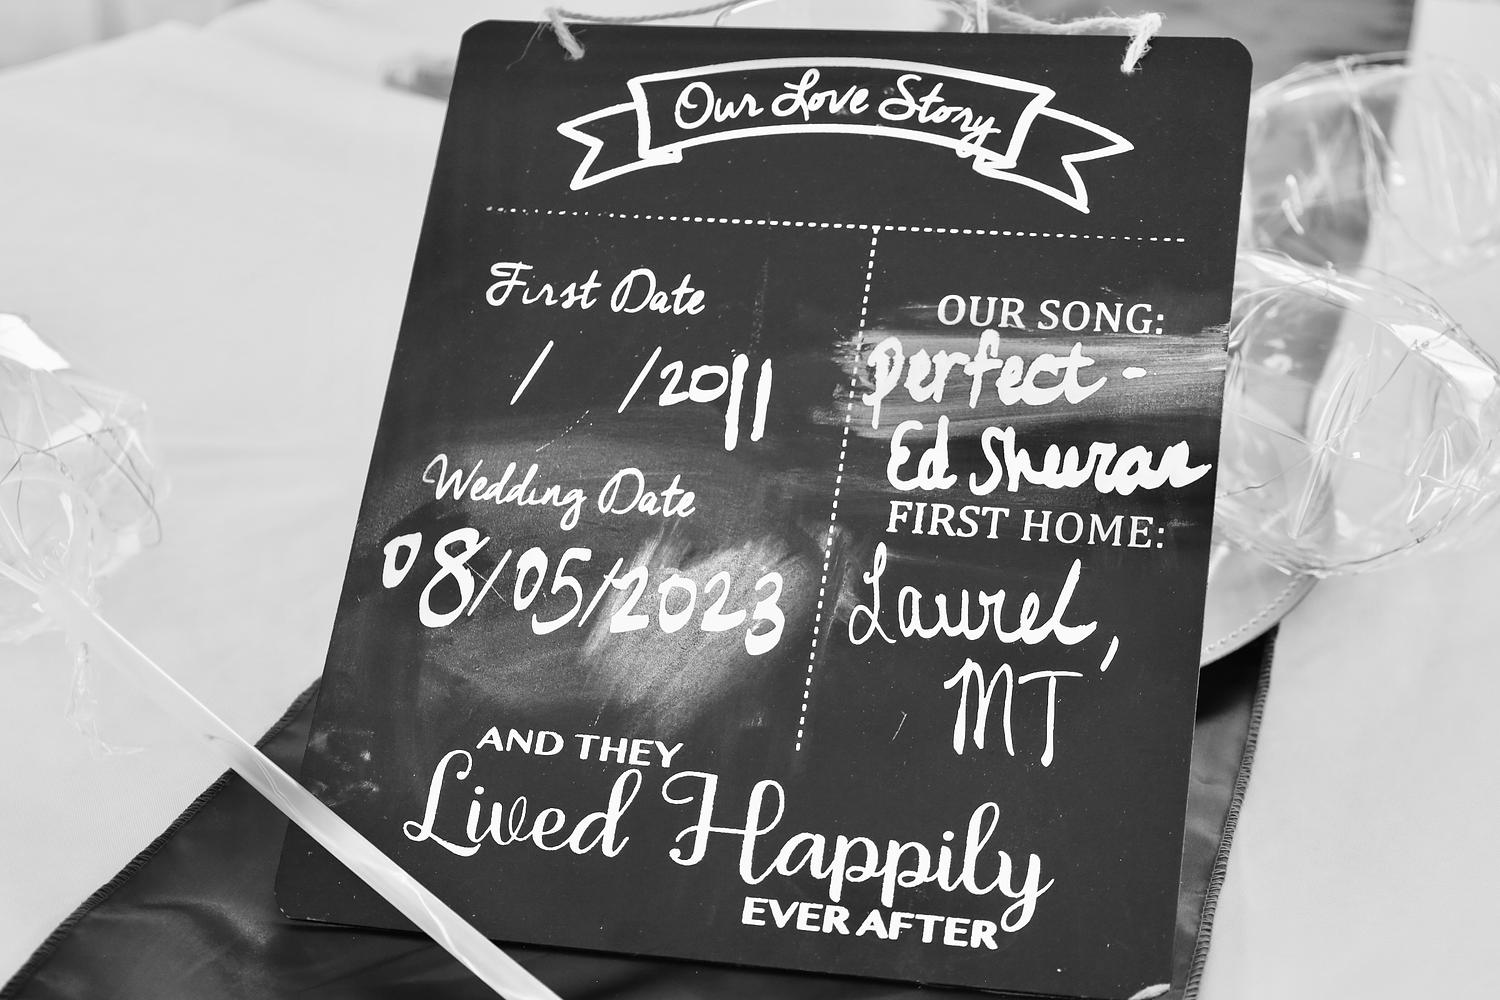 Our Love Story
First Date
/ /2011
Wedding Date
08/05/2023
OUR SONG:
Perfect -
Ed Sheeran
FIRST HOME:
Laurel,
MT
AND THEY
Lived Happily
EVER AFTER